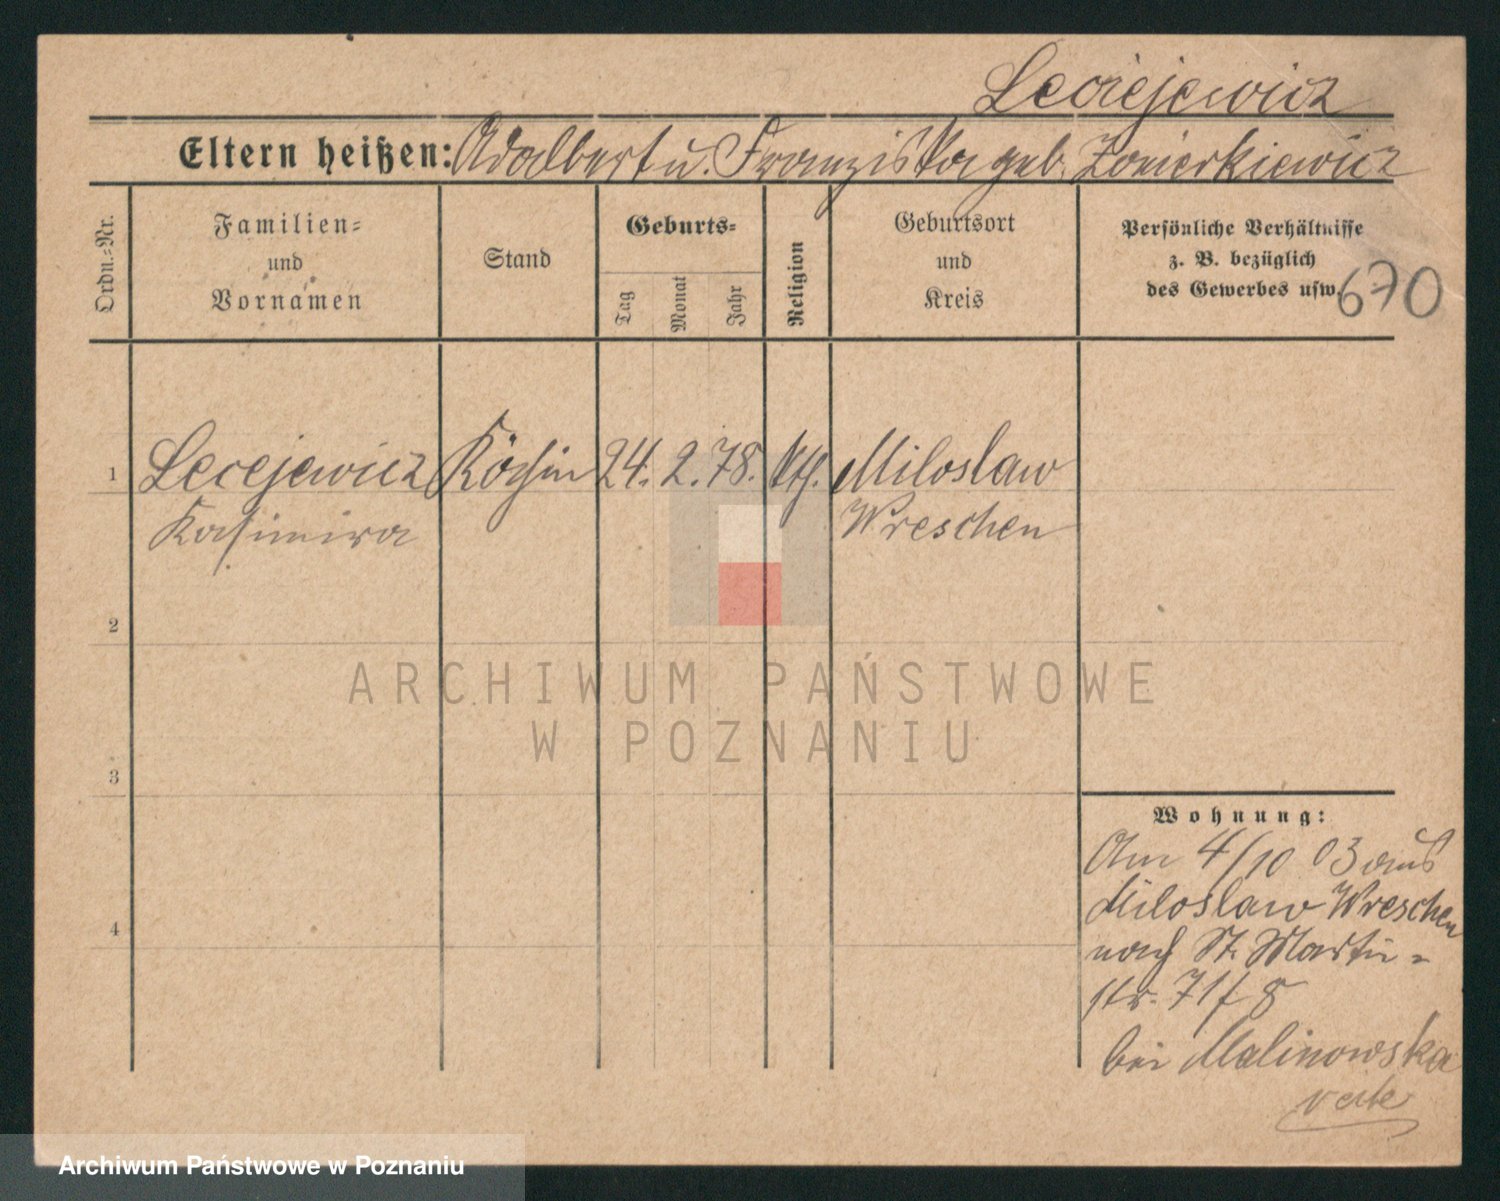 Leciejewicz
Eltern heißen: Adalbert u. Franziska geb.
Ordn.-Nr.
Familien-
und
Vornamen
Stand
Geburts-
Tag
Monat
Jahr
Religion
Geburtsort
und
Kreis
Persönliche Verhältnisse
z. B. bezüglich
des Gewerbes usw.
670
1 Lecejewicz Köchin 24. 2. 78. kth. Miloslaw
Kasimira Wreschen
2
3
4
ARCHIWUM PAŃSTWOWE
W POZNANIU
Wohnung:
Am 4/10 03 aus
Miloslaw Wreschen
nach St. Martin-
str. 71
bei Malinowska
verte
Archiwum Państwowe w Poznaniu